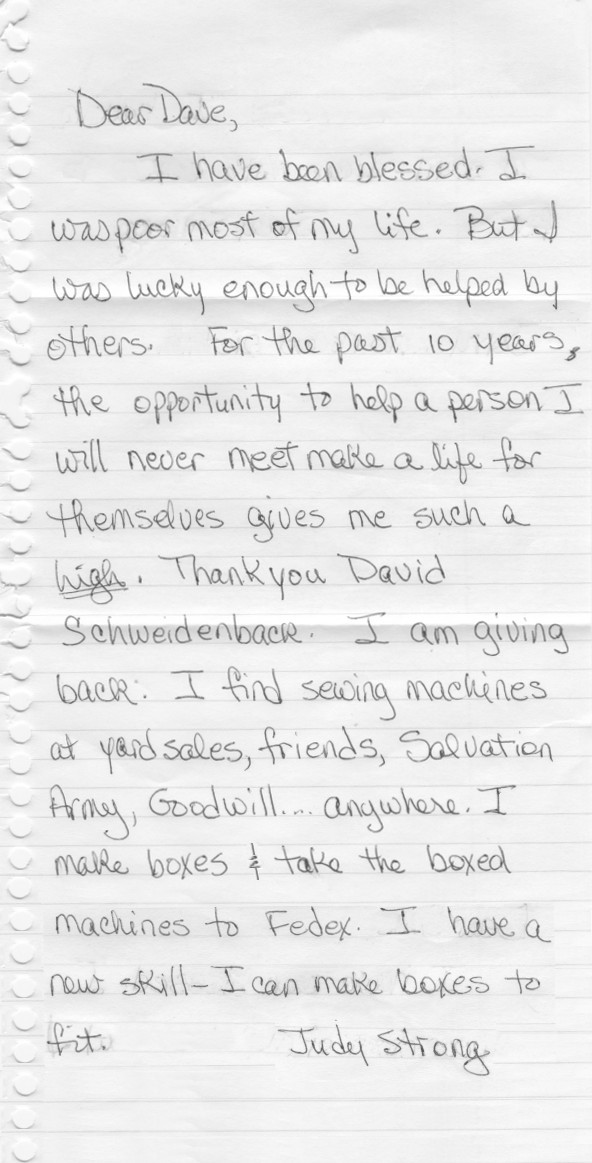 Dear Dave,
I have been blessed. I
was poor most of my life. But I
was lucky enough to be helped by
others. For the past 10 years,
the opportunity to help a person I
will never meet make a life for
themselves gives me such a
high. Thank you David
Schweidenback. I am giving
back. I find sewing machines
at yard sales, friends, Salvation
Army, Goodwill.... anywhere. I
make boxes & take the boxed
machines to Fedex. I have a
new skill - I can make boxes to
fit. Judy Strong